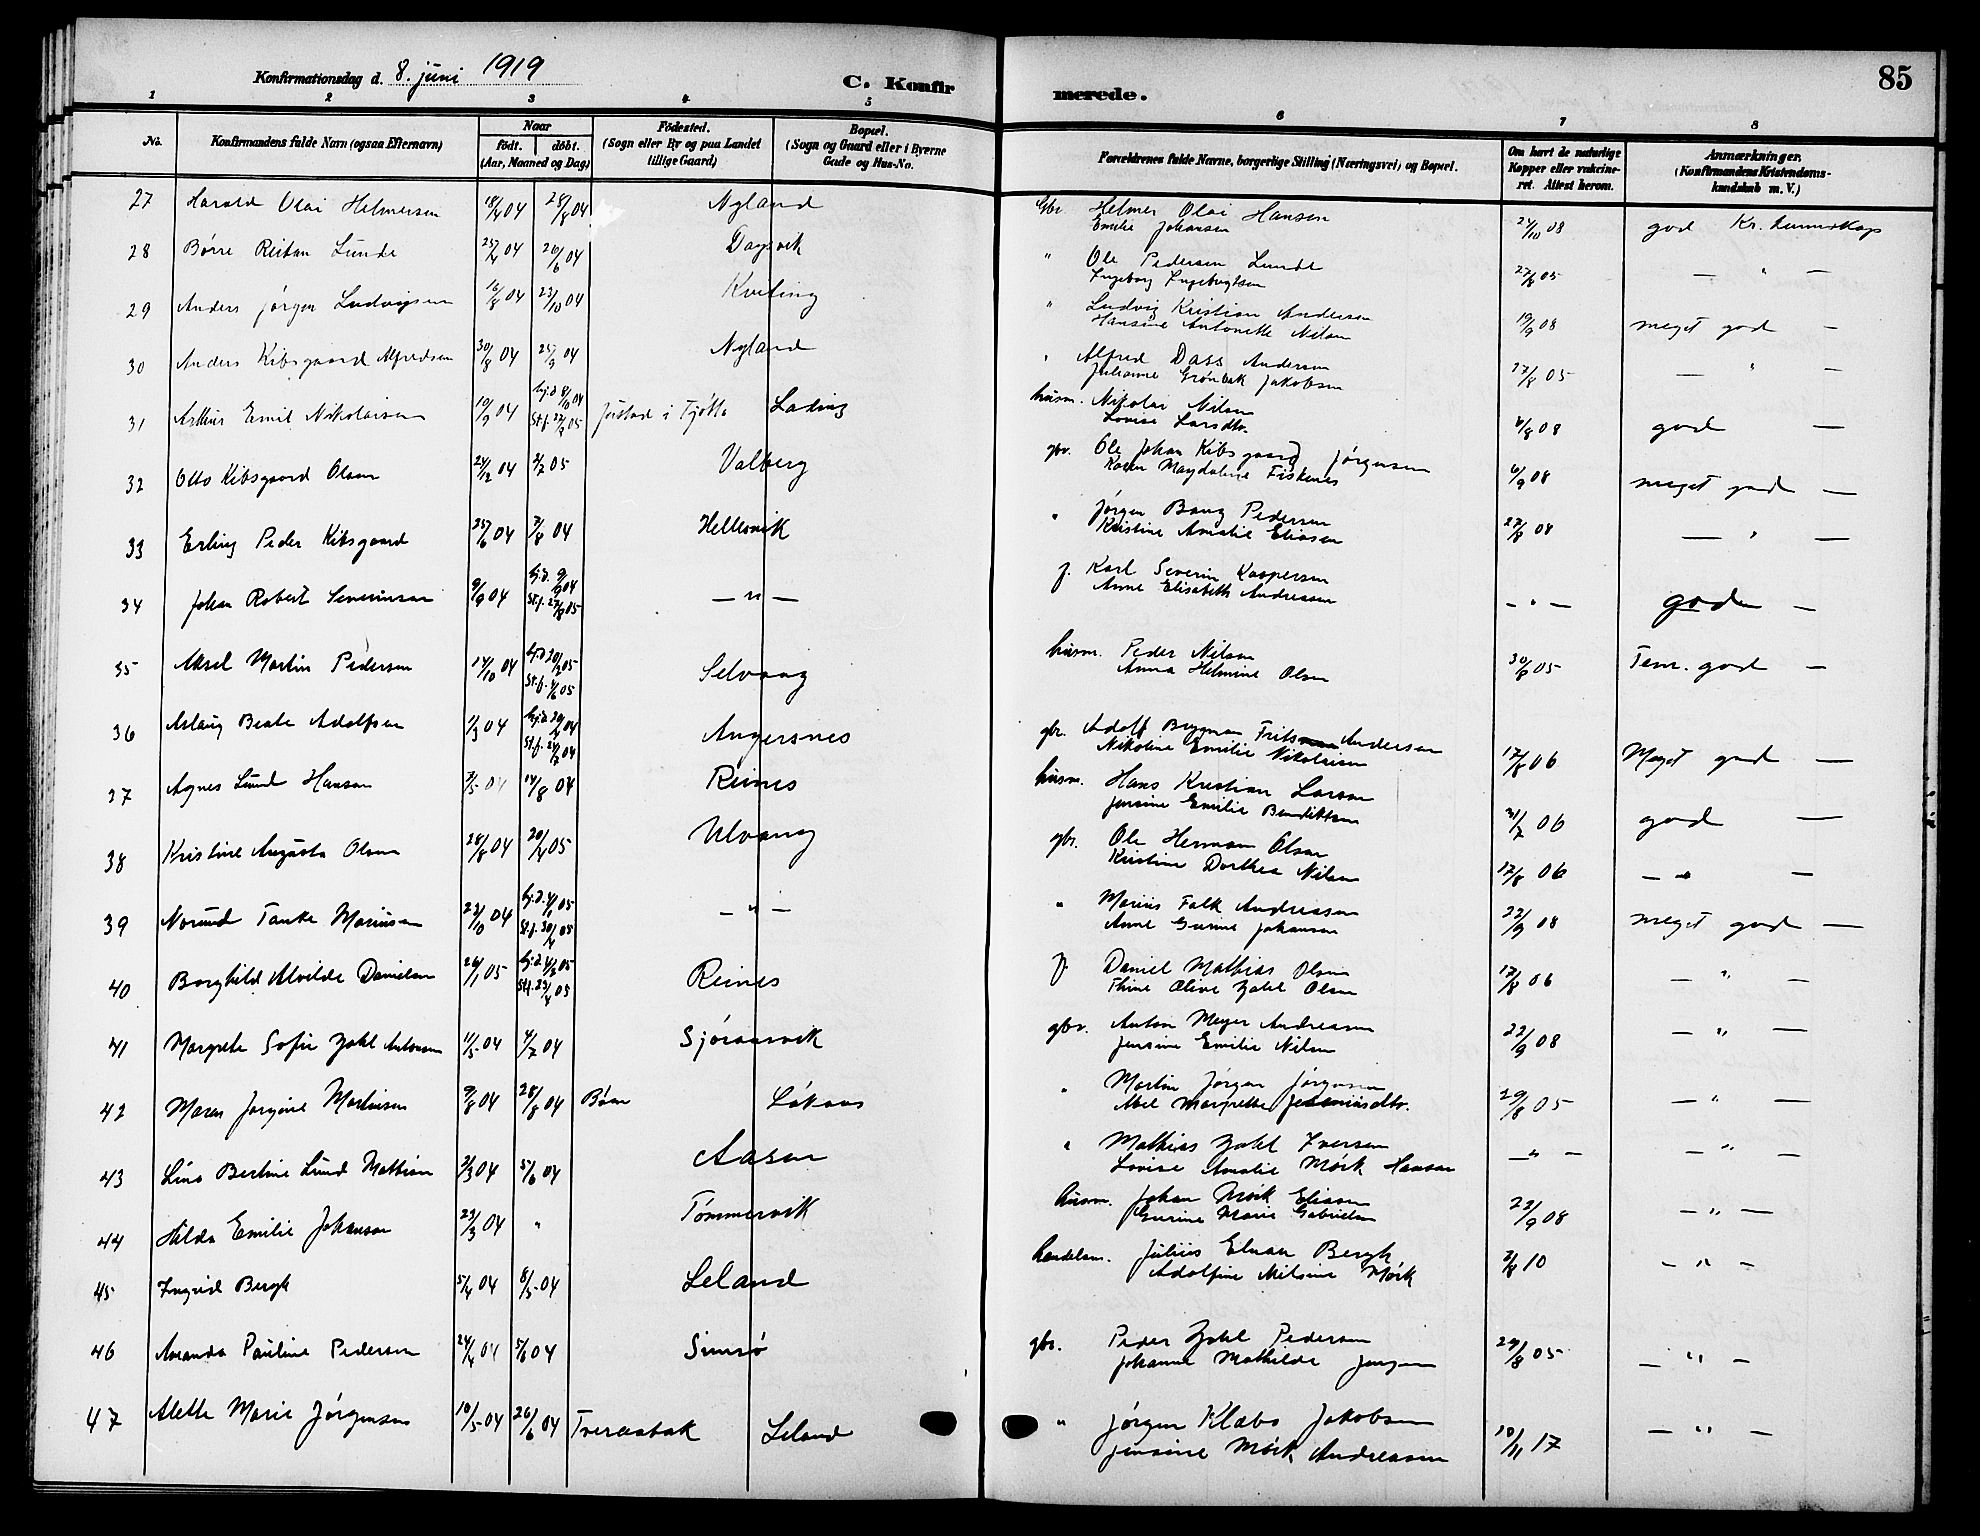 Konfirmationsdag d. 8. juni 1919
C. Konfirmerede.
85
1 2 3 4 5 6 7 8
No. Konfirmandens fulde Navn (ogsaa Efternavn) Naar født. døbt. (Aar, Maaned og Dag) Fødested. (Sogn eller By og paa Landet tillige Gaard) Bopæl. (Sogn og Gaard eller i Byerne Gade og Hus-No. Forældrenes fulde Navne, borgerlige Stilling (Næringsvei) og Bopæl. Om havt de naturlige Kopper eller vakcineret. Attest herom. Anmærkninger. (Konfirmandens Kristendomskundskab m. V.)
27 Harald Olai Helmersen 18/4 04 28/8 04 Nyland Gbr. Helmer Olai Hansen 24/10 08 god Kr. kunnskap
Emilie Johansen
28 Børre Ristan Lunde 25/4 04 26/6 04 Dagsvik " Ole Pedersen Lunde 27/8 05 — " —
Ingeborg Ingebrigtsen
29 Anders Jørgen Ludvigsen 16/8 04 23/10 04 Kveting " Ludvig Kristian Andersen 19/9 08 meget god —
Hansine Antonette Nilsen
30 Anders Kibsgaard Alfredsen 30/8 04 25/9 04 Nyland " Alfred Dass Andersen 27/8 05 — " —
Julianne Grønbek Jakobsen
31 Arthur Emil Nikolaisen 10/9 04 hj.d. 8/10 04 Justad i Tjøtta Lading husm. Nikolai Nilsen 6/8 08 god —
St.f. 22/2 05 Lovise Larsdtr.
32 Otto Kibsgaard Olsen 24/12 04 2/7 05 Valberg gbr. Ole Johan Kibsgaard Jørgensen 6/9 08 meget god —
Karen Magdalene Fiskenes
33 Erling Peder Kibsgaard 25/6 04 7/8 04 Hellesvik " Jørgen Bang Pedersen 27/8 08 — " —
Kristine Amalie Eliasen
34 Johan Robert Severinsen 9/9 04 hj.d. 9/9 04 — " — f. Karl Severin Kaspersen — " — god —
St.f. 27/8 05 Anne Elisabeth Andreassen
35 Aksel Martin Pedersen 14/10 04 hj.d. 20/2 05 Selvaag husm. Peder Nilsen 30/8 05 Tem. god —
St.f. 4/6 05 Anna Helmine Olsen
36 Aslaug Beate Adolfsen 1/3 04 hj.d. 29/4 04 Angersnes gbr. Adolf Bergman Frits Andersen 17/8 06 Meget god —
St.f. 24/7 04 Nikoline Emilie Nikolaisen
37 Agnes Lund Hansen 7/5 04 14/8 04 Reines husm. Hans Kristian Larsen 31/7 06 god —
Jensine Emilie Bendiktsen
38 Kristine Augusta Olsen 28/8 04 20/4 05 Ulvang gbr. Ole Herman Olsen 17/8 06 — " —
Kristine Dorthea Nilsen
39 Norund Tanke Mariusen 23/10 04 hj.d. 4/1 05 — " — " Marius Falk Andreassen 22/9 08 meget god —
St.f. 30/4 05 Anne Gurine Johansen
40 Borghild Alvilde Danielsen 26/1 05 hj.d. 4/3 05 Reines f. Daniel Mathias Olsen 17/8 06 — " —
St.f. 23/4 05 Thine Olive Zahl Olsen
41 Margrete Sofie Zahl Antonsen 11/5 04 4/7 04 Sjøraasvik gbr. Anton Meyer Andreasen 22/9 08 — " —
Jensine Emilie Nilsen
42 Maren Jørgine Martinsen 9/8 04 28/8 04 Bøen Løkaas " Martin Jørgen Jørgensen 29/8 05 — " —
Abel Margrethe Jeremiasdtr.
43 Lina Bertine Lund Mathisen 3/3 04 5/6 04 Aasen " Mathias Zahl Iversen — " — — " —
Lovise Amalie Mørk Hansen
44 Hilda Emilie Johansen 23/3 04 " Tømmervik husm. Johan Mørk Eliasen 22/9 08 — " —
Gurine Marie Gabrielsen
45 Ingrid Bergh 5/4 04 8/5 04 Leland handelsm. Julius Elnan Bergh 3/8 10 — " —
Adolfine Nilsine Mørk
46 Amanda Pauline Pedersen 24/4 04 5/6 04 Simsø gbr. Peder Zahl Pedersen 29/8 05 — " —
Johanne Mathilde Jensen
47 Alette Marie Jørgensen 10/5 04 26/6 04 Tveraabak Leland " Jørgen Klæbo Jakobsen 10/11 17 — " —
Jensine Mørk Andreassen